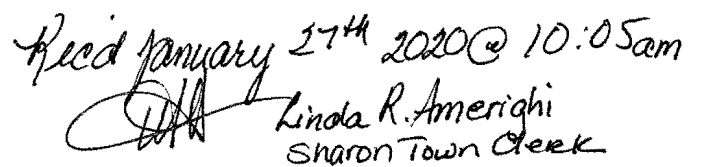 Rec'd January 27th 2020 @ 10:05am
Linda R. Amerighi
Sharon Town Clerk